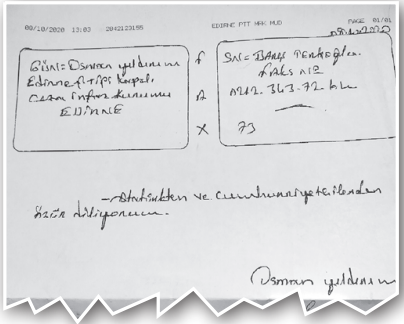 09/10/2020 13:03 2842123195 EDIRNE PTT MRK MUD PAGE 01/01
GÖN= Osman yıldırım
Edirne F tipi kapalı
Ceza infaz kurumu
EDİRNE
F
A
X
SN= BARIŞ
FAKS NO
0212. 343. 72. 64
73
-Atatürkten ve Cumhuriyetçilerden
özür diliyorum.
Osman yıldırım